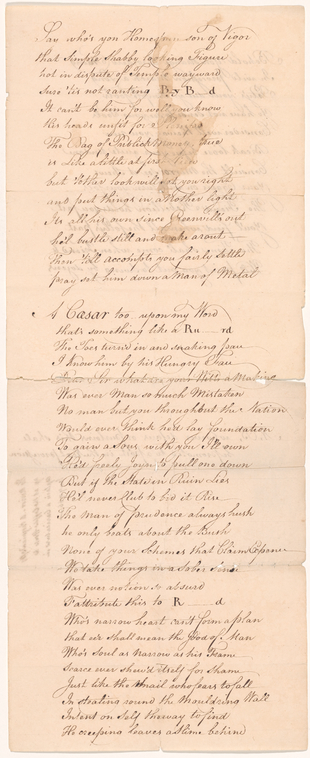 Say who's yon Homespun son of Vigor
that Simple Shabby looking Figure
not in dispute of Temple wayward
Sure 'tis not ranting B y B d
It can't be him for well you know
His heads unfit for
The Bag of Publick Money
is Like a little at first
but 'tother look will set you right
and put things in another light
Its all his own since Greenvills out
he'll bustle still and make a rout
Then t'all accompts you fairly settle
pray set him down a Man of Metal
A Cæsar too upon my Word
that's something like a Ru rd
The Toes turned in and sneaking pace
I know him by his Hungry Face
what are your Wits a Making
Was ever Man so much Mistaken
No man but you throughout the Nation
Would ever think he'd lay foundation
To gain a Sous with you I'll own
He'd freely Join to pull one down
But if the State in Ruin Lies
He'd never Club to bid it Rise
The Man of prudence always hush
he only beats about the Bush
None of your Schemes that Claim Expence
We take things in a Sober Sence
Was ever notion so absurd
T'attribute this to R d
Who's narrow heart can't form a plan
that we shall mean the good of Man
Who's Soul as Narrow as his Frame
Scarce ever shew'd itself for Shame
Just like the Snail who fears to fall
In steating round the Mouldring Wall
Intent on Self the way to find
He creeping leaves a slime behind